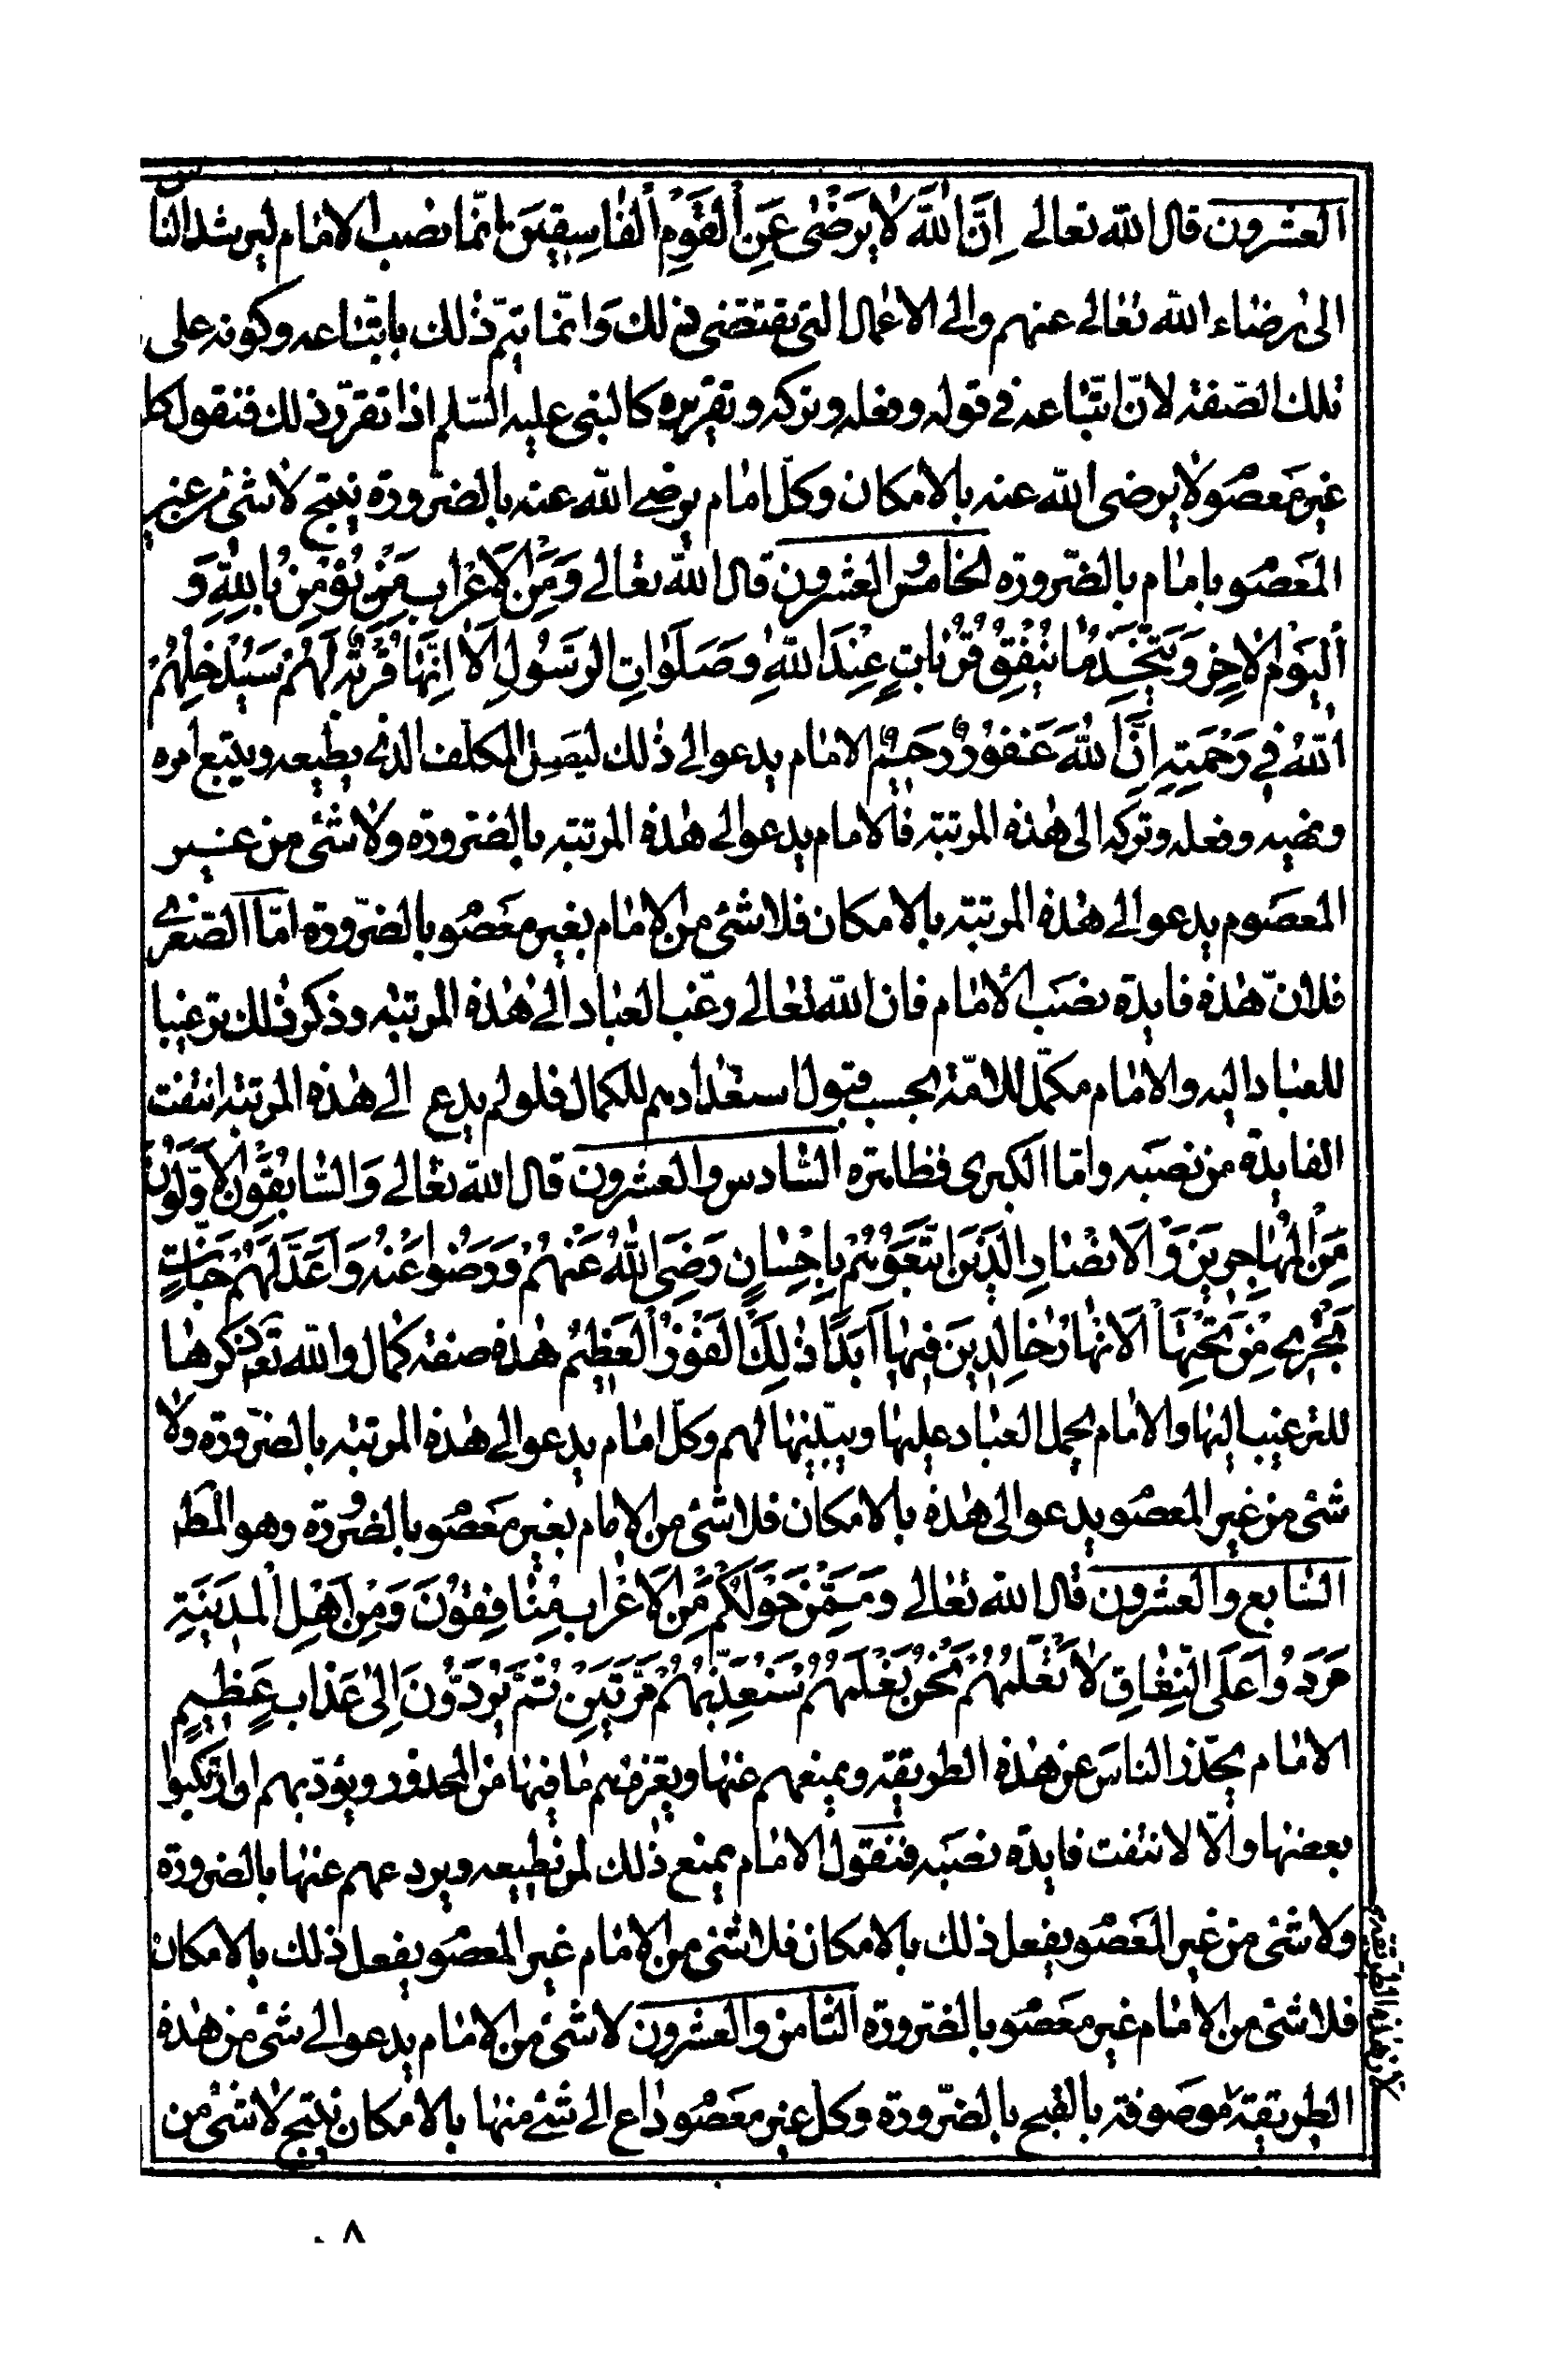 العشرون قال الله تعالى اِنَّ اللّٰهَ لاٰ يَرْضٰى عَنِ الْقَوْمِ الْفٰاسِقِينَ انّما نصب الامام ليرشد الناس
الى رضاء الله تعالى عنهم والى الاعمال التى تقتضى ذلك وانّما يتم ذلك باتّباعه وكونه على
تلك الصّفة لانّ اتّباعه فى قوله وفعله وتركه وتقريره كالنبى عليه السّلم اذا تقرّر ذلك فنقول كل
غير معصو لا يرضى الله عنه بالامكان وكلّ امام يرضى الله عنه بالضّرورة ينتج لا شئ من غير
المعصو بامام بالضّرورة الخامس والعشرون قال الله تعالى وَمِنَ الْاَعْرٰابِ مَنْ يُؤْمِنُ بِاللّٰهِ وَ
الْيَوْمِ الْاٰخِرِ وَيَتَّخِذُ مٰا يُنْفِقُ قُرُبٰاتٍ عِنْدَ اللّٰهِ وَصَلَوٰاتِ الرَّسُولِ اَلاٰ اِنَّهٰا قُرْبَةٌ لَهُمْ سَيُدْخِلُهُمُ
اللّٰهُ فِى رَحْمَتِهِ اِنَّ اللّٰهَ غَفُورٌ رَحِيمٌ الامام يدعو الى ذلك ليصل المكلف الذى يطيعه ويتبع امره
ونهيه وفعله وتركه الى هذه المرتبة فالامام يدعو الى هذه المرتبة بالضّرورة ولا شئ من غير
المعصوم يدعو الى هذه المرتبة بالامكان فلا شئ من الامام بغير معصو بالضّرورة امّا الصّغرى
فلانّ هذه فايدة نصب الامام فان الله تعالى رغّب العباد الى هذه المرتبة وذكر ذلك ترغيبا
للعباد اليه والامام مكمّل للامّة بحسب قبول استعدادهم للكمال فلو لم يدع الى هذه المرتبة انتفت
الفايدة من نصبه وامّا الكبرى فظاهرة السّادس والعشرون قال الله تعالى وَالسّٰابِقُونَ الْاَوَّلُونَ
مِنَ الْمُهٰاجِرِينَ وَالْاَنْصٰارِ وَالَّذِينَ اتَّبَعُوهُمْ بِاِحْسٰانٍ رَضِىَ اللّٰهُ عَنْهُمْ وَرَضُوا عَنْهُ وَاَعَدَّ لَهُمْ جَنّٰاتٍ
تَجْرِى مِنْ تَحْتِهَا الْاَنْهٰارُ خٰالِدِينَ فِيهٰا اَبَدًا ذٰلِكَ الْفَوْزُ الْعَظِيمُ هذه صفة كمال والله تعم ذكرها
للترغيب اليها والامام يحمل العباد عليها ويبيّنها لهم وكلّ امام يدعو الى هذه المرتبة بالضّرورة ولا
شئ من غير المعصو يدعو الى هذه بالامكان فلا شئ من الامام بغير معصو بالضّرورة وهو المط
السّابع والعشرون قال الله تعالى وَمِمَّنْ حَوْلَكُمْ مِنَ الْاَعْرٰابِ مُنٰافِقُونَ وَمِنْ اَهْلِ الْمَدِينَةِ
مَرَدُوا عَلَى النِّفٰاقِ لاٰ تَعْلَمُهُمْ نَحْنُ نَعْلَمُهُمْ سَنُعَذِّبُهُمْ مَرَّتَيْنِ ثُمَّ يُرَدُّونَ اِلىٰ عَذٰابٍ عَظِيمٍ
الامام يحذّر الناس عن هذه الطريقة ويمنعهم عنها ويعرّفهم ما فيها من المحذور ويؤدبهم او ارتكبوا
بعضها والّا لانتفت فايدة نصبه فنقول الامام يمنع ذلك لمن يطيعه ويردعهم عنها بالضرورة
ولا شئ من غير المعصو يفعل ذلك بالامكان فلا شئ من الامام غير المعصو يفعل ذلك بالامكان
فلا شئ من الامام غير معصو بالضّرورة الثامن والعشرون لا شئ من الامام يدعو الى شئ من هذه
الطريقة موصوفة بالقبح بالضّرورة وكل غير معصو داع الى شئ منها بالامكان ينتج لا شئ من
لان هذه الطريقة
٨